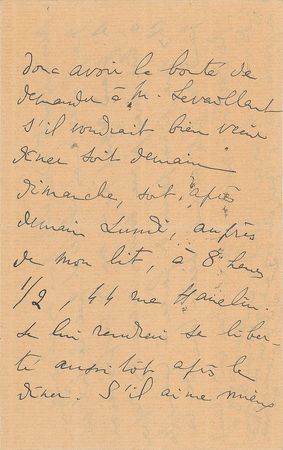 donc avoir la bonté de
demander à M. Levaillant
s'il voudrait bien venir
diner soit demain
dimanche, soit après
demain Lundi, auprès
de mon lit, à 8 heures
1/2, 44 rue Hamelin.
Je lui rendrai sa liber-
té aussitôt après le
diner. S'il aime mieux